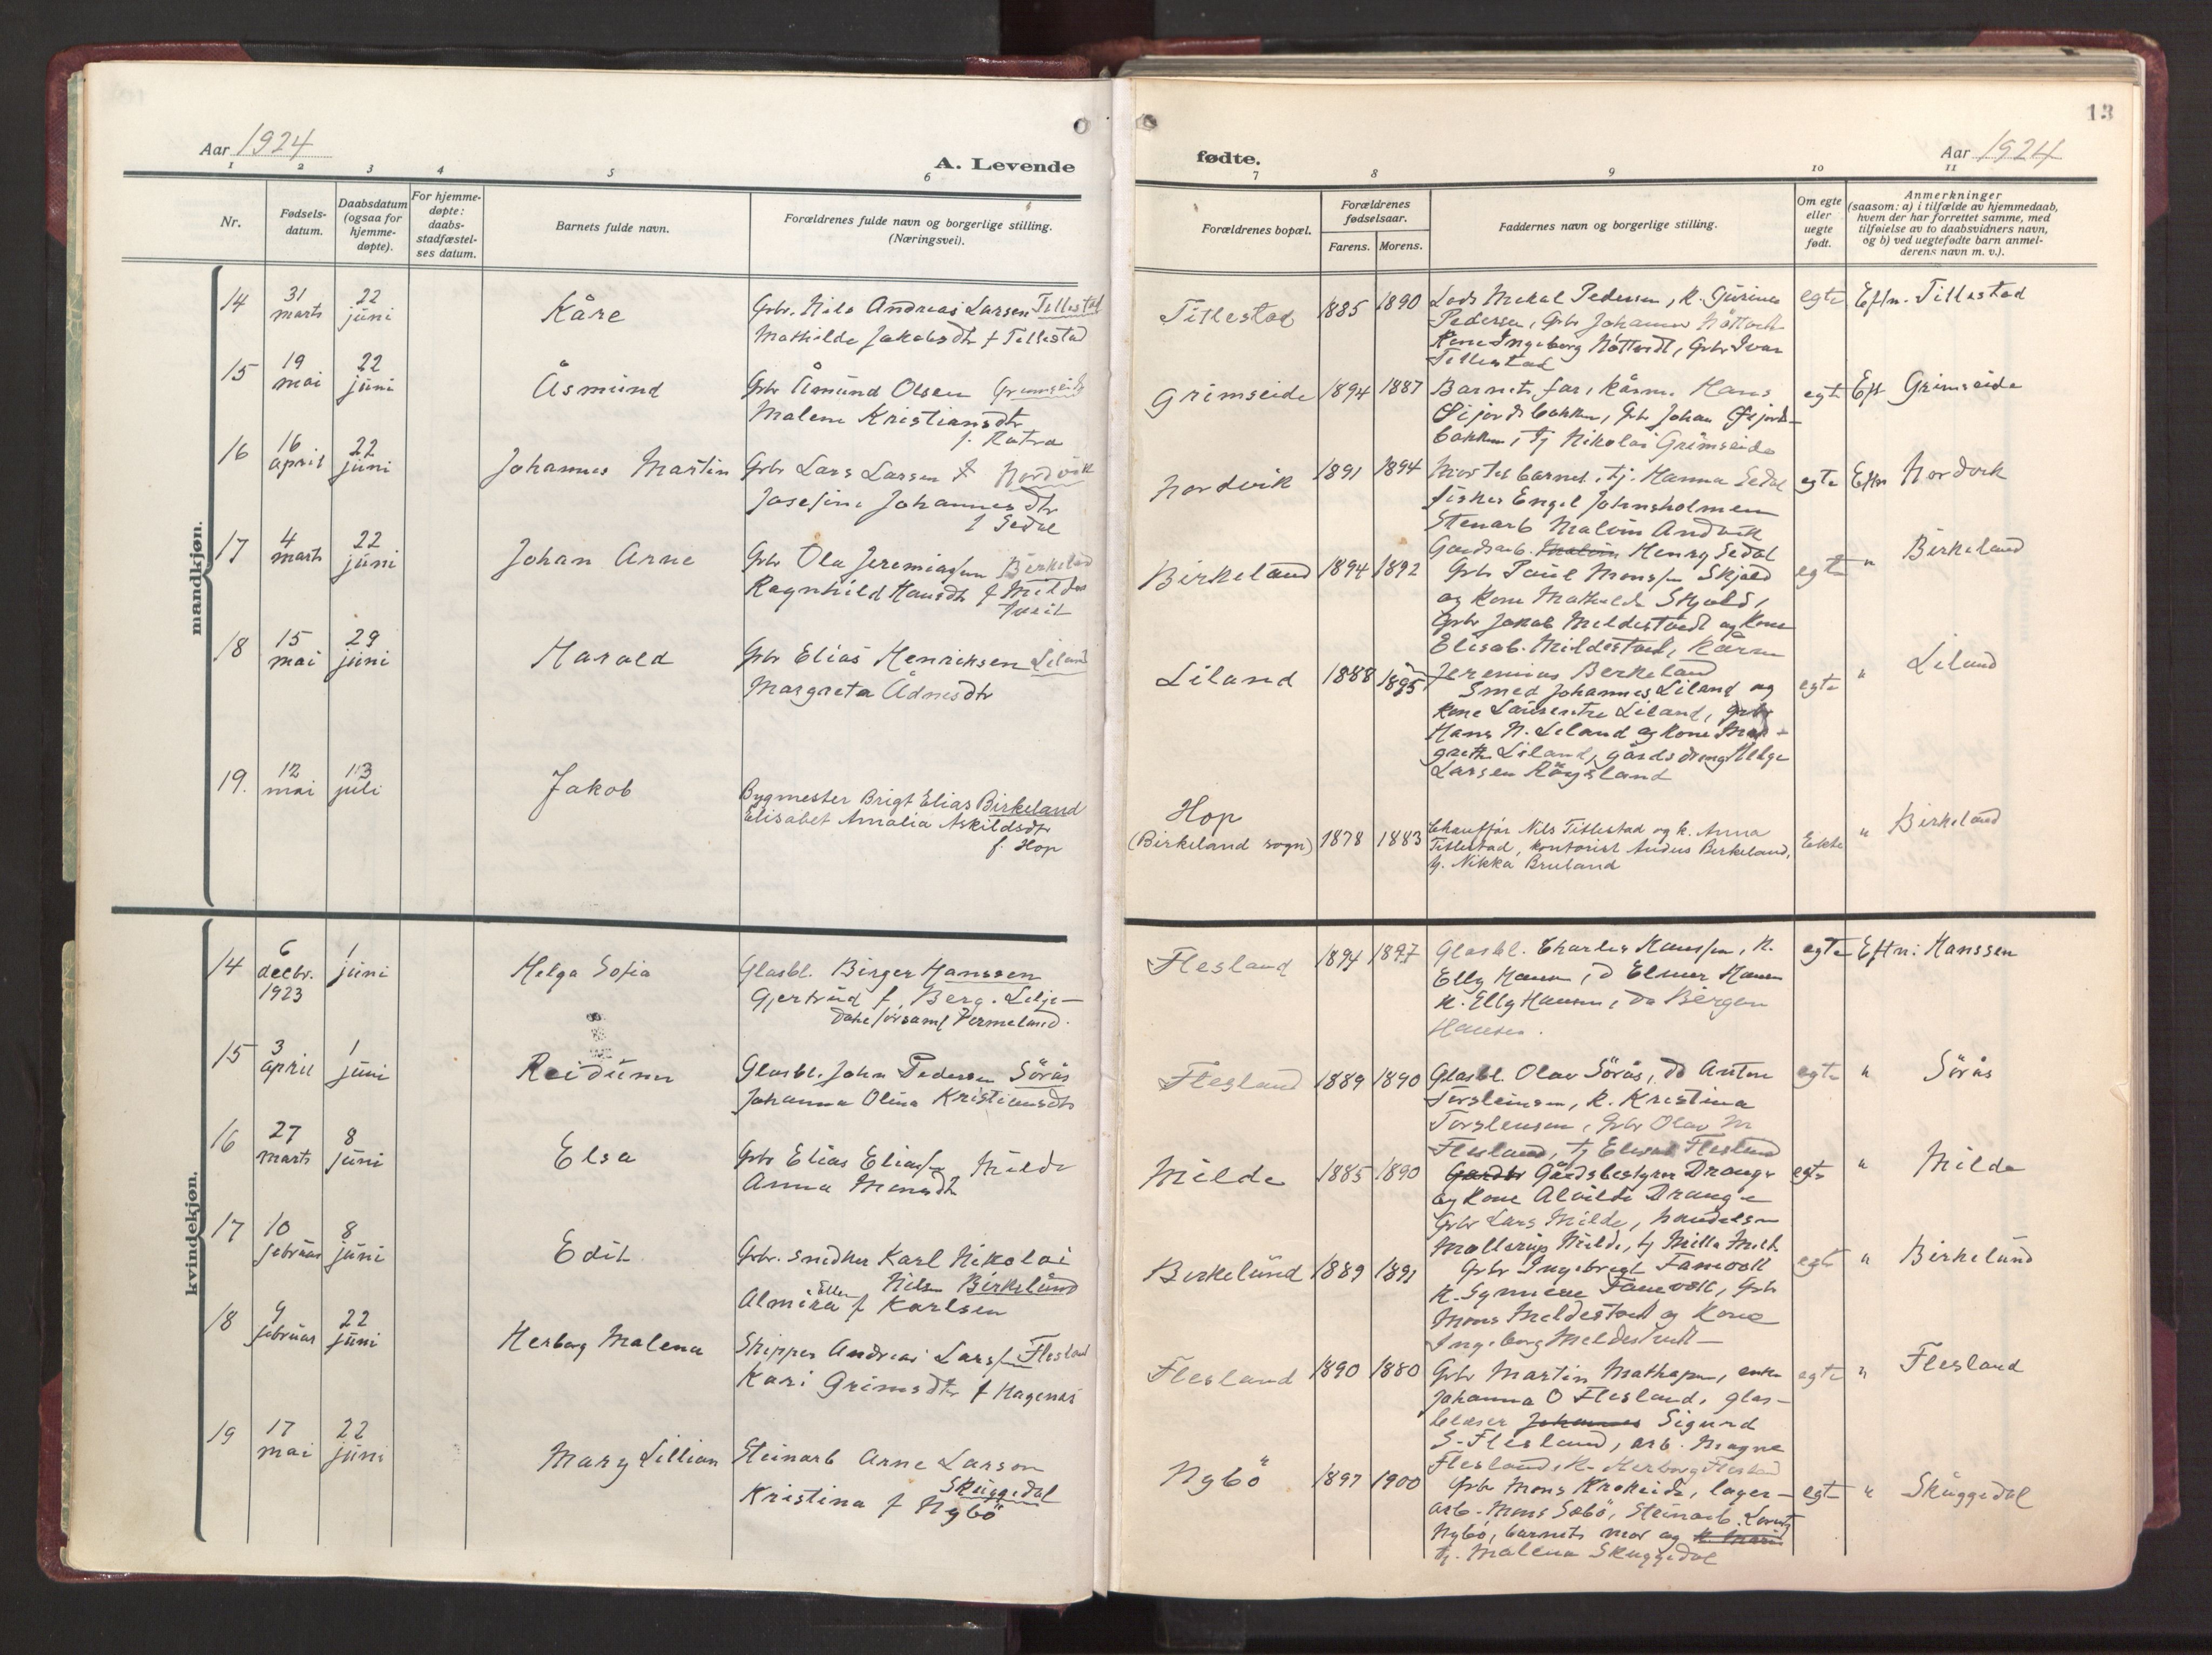 13
Aar 1924
A. Levende
fødte.
Aar 1924
1 2 3 4 5 6 7 8 9 10 11
Nr.
Fødsels-
datum.
Daabsdatum
(ogsaa for
hjemme-
døpte).
For hjemme-
døpte:
daabs-
stadfæstel-
ses datum.
Barnets fulde navn.
Forældrenes fulde navn og borgerlige stilling.
(Næringsvei).
Forældrenes bopæl.
Forældrenes
fødselsaar.
Farens. Morens.
Faddernes navn og borgerlige stilling.
Om egte
eller
uegte
født.
Anmerkninger
(saasom: a) i tilfælde av hjemmedaab,
hvem der har forrettet samme, med
tilføielse av to daabsvidners navn,
og b) ved uegtefødte barn anmel-
derens navn m. v.).
mandkjøn.
14
31
marts
22
juni
Kåre
Grbr. Nils Andreas Larsen Titlestad
Mathilde Jakobsdtr f Titlestad
Titlestad
1885 1890
Pedersen, Grbr Johannes
Kone Ingeborg
Titlestad
egte
Eftn. Titlestad
15
19
mai
22
juni
Åsmund
Grbr Åmund Olsen Grimseide
Malene Kristiansdtr
f. Rotra
Grimseide
1894 1887
Barnets far, Hans
bakken, Grbr Johan
bakken, tj Nikolai Grimseide
egte
Eft Grimseide
16
16
april
22
juni
Johannes Martin
Grbr Lars Larsen f Nordvik
Josefine Johannesdtr
f Sedal
Nordvik
1891 1894
Mor til barnet, tj. Hanna Sedal
Fisker Engel Johnsholmen
Stenarb Malvin Andvik
Gaardsarb. Malvin Henry Sedal
egte
Eftn Nordvik
17
4
marts
22
juni
Johan Arne
Grbr Ola Jeremiassen Birkeland
Ragnhild Hansdtr f Milde
Birkeland
1894 1892
Grbr Paul Monssen Skjold
og kone Mathilde Skjold,
Grbr Jakob Mildestvedt og kone
Elisab. Mildestvedt, Kårm
Jeremias Birkeland
egte
" Birkeland
18
15
mai
29
juni
Harald
Grbr Elias Henriksen Liland
Margreta Ådnesdtr
Liland
1888 1895
Smed Johannes Liland og
kone Laurentze Liland, Grbr
Hans N. Liland og kone Mar-
grethe Liland, gårdsdreng Helge
Larsen Röysland
egte
" Liland
19.
12
mai
13
juli
Jakob
Bygmester Brigt Elias Birkeland
Elisabet Amalia Askildsdtr
f. Hop
Hop
(Birkeland sogn)
1878 1883
Chauffør Nils Titlestad og k. Anna
Titlestad, kontorist Birkeland,
tj. Nikka Bruland
Ekte
" Birkeland
kvindekjøn.
14
6
decbr.
1923
1
juni
Helga Sofia
Glasbl. Birger Hanssen
Gjertrud f. Berg. Lilje-
dahl forsaml Vermeland.
Flesland
1894 1897
Glasbl. Charles Hanssen, K.
Elly Hansen, d Elmer Hansen
K. Elly Hansen, do Bergen
Hansen.
egte
Eftn: Hanssen
15
3
april
1
juni
Reidunn
Glasbl. John Pedersen Sörås
Johanna Olina Kristiansdtr
Flesland
1889 1890
Glasbl. Olav Sörås, do Anton
Torsteinsen, K. Kristina
Torsteinsen, Grbr Olav M
Flesland, tj Flesland
egte
" Sörås
16
27
marts
8
juni
Elsa
Grbr Elias Eliassen Milde
Anna Monsdtr
Milde
1885 1890
Gårdsbestyrer Drange
og kone Alvilde Drange
Grbr Lars Milde, handelsm
Mollerup Milde, tj Milla Milde
egte
" Milde
17
10
februar
8
juni
Edit
Grbr. snedker Karl Nikolai
Nilsen Birkelund
Almira f Karlsen
Birkelund
1889 1891
Grbr Ingebrigt Fanevoll
K. Synneve Fanevoll, Grbr
Mons Mildestvedt og kone
Ingeborg Mildestvedt
egte
" Birkelund
18
9
februar
22
juni
Herborg Malena
Skipper Andreas Larssen Flesland
Kari Grimsdtr f Hagenæs
Flesland
1890 1880
Grbr Martin Mathiassen, enke
Johanna O Flesland, glas-
blæser Johannes Sigurd
S. Flesland, arb. Magne
Flesland, K. Herborg Flesland
egte
" Flesland
19
17
mai
22
juni
Mary Lillian
Steinarb Arne Larsen
Skuggedal
Kristina f Nybö
Nybö
1897 1900
Grbr Mons Krokeide, lager-
arb. Mons Sæbö, Steinarb. Lorentz
Nybö, barnets mor og K. Marie
tj. Malena Skuggedal
egte
" Skuggedal